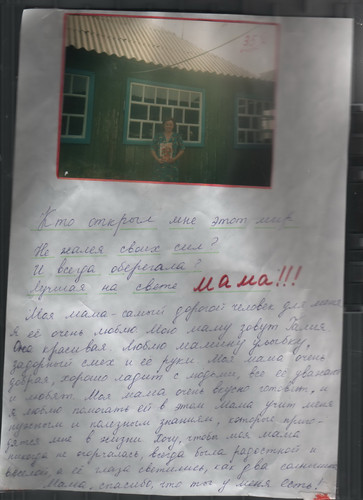 Кто открыл мне этот мир
Не жалея своих сил?
И всегда оберегала?
Лучшая на свете мама!!!
Моя мама - самый дорогой человек для меня
я её очень люблю Мою маму зовут Галия
Она красивая Люблю мамину улыбку,
задорный смех и её руки Моя мама очень
добрая, хорошо ладит с людьми, все её уважают
и любят. Моя мама очень вкусно готовит, и
я люблю помогать ей в этом Мама учит меня
нужным и полезным знаниям, которые приго-
дятся мне в жизни Хочу, чтобы моя мама
никогда не огорчалась всегда была радостной и
весёлой, а её глаза светились, как два солнышка
Мама, спасибо, что ты у меня есть!